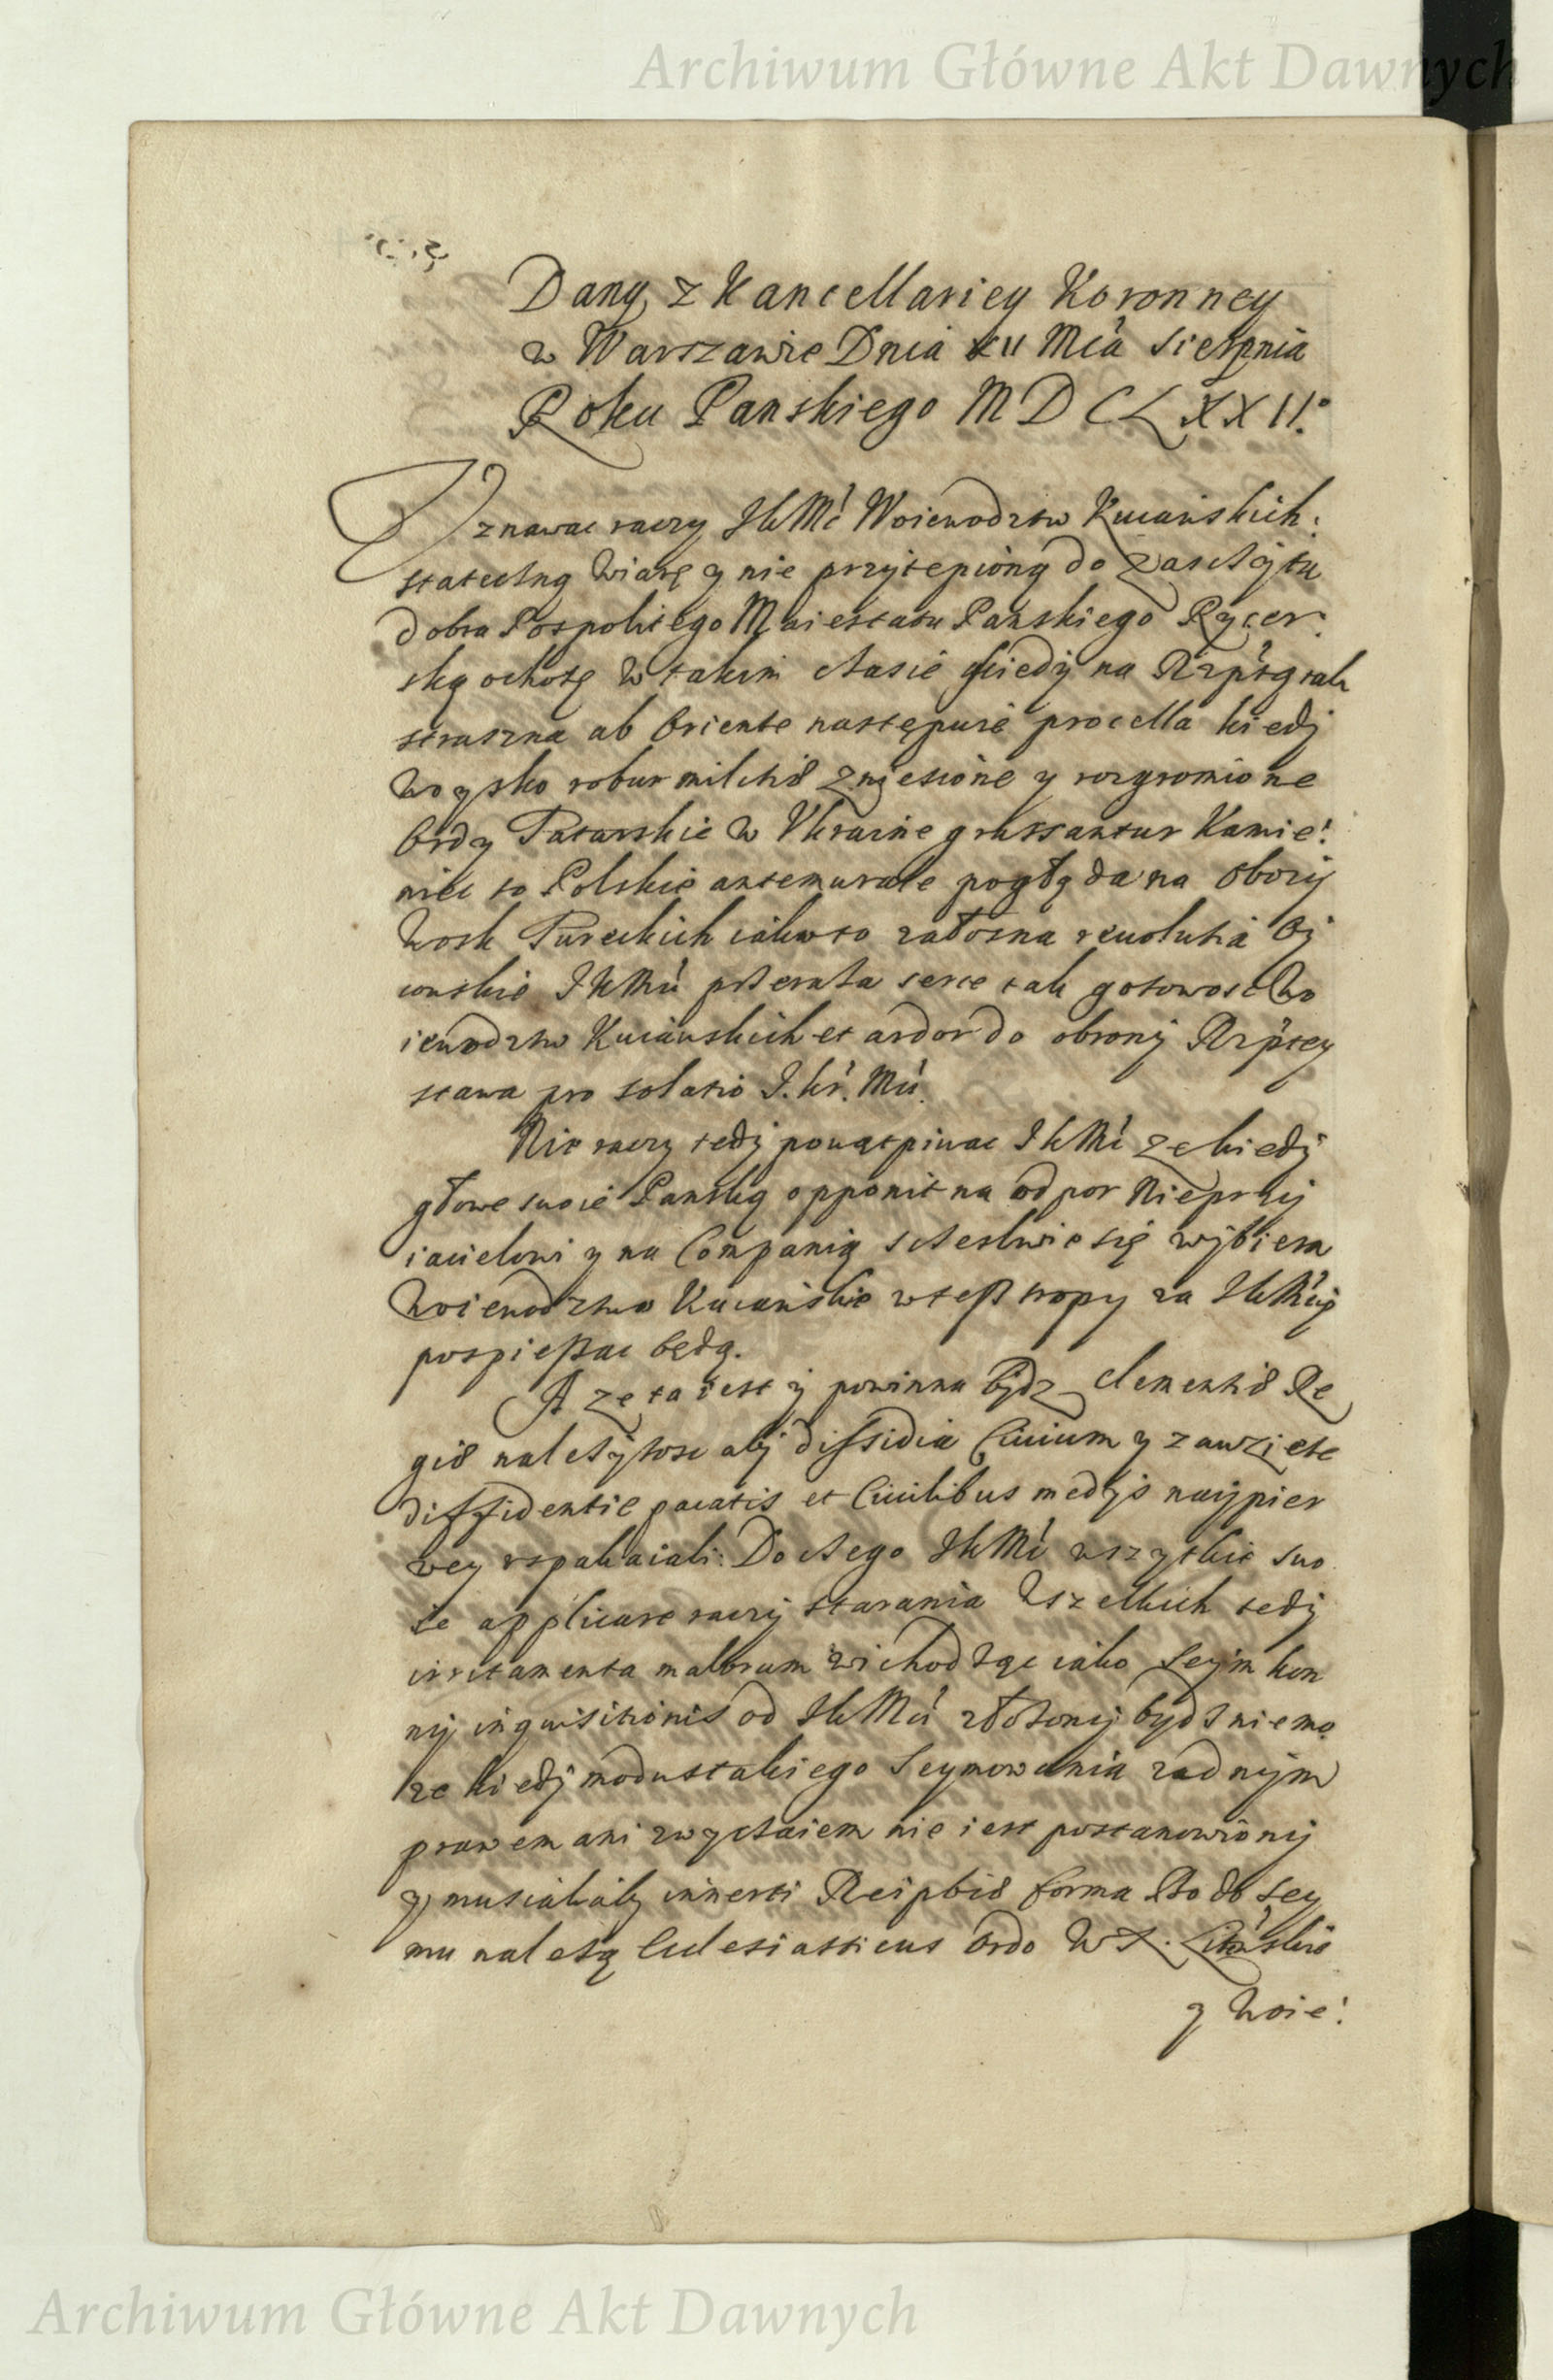 Archiwum Główne Akt Dawnych
Dany z Kancellariey Koronney
w Warszawie Dnia XII Mca Sierpnia
Roku Panskiego MDCLXXII.
Vznawac raczy JKMć Woiewodztw Kuiawskich
statectną Wiarę y nie przytępioną do zasczytu
dobra Pospolitego Maiestatu Panskiego Rycer:
ską ochotę w takim czasie kiedy na Rzptą tak
straszna ab Oriente następuie procella kiedy
Woysko robur militis zniesione y rozgromione
Ordy Tatarskie w Vkrainie grassantur Kamie:
niec to Polskie antemurale pogląda na obozy
Wosk Tureckich iako to załosna reuolutia Oy
cowskie JKMci przeraza serce tak gotowosc Wo
iewodztw Kuiawskich et ardor do obrony Rzptey
stawa pro solatio J. Kr. Mci.
Nie raczy tedy powątpiwac JKMć ze kiedy
głowe swoię Panską opponit na odpor Nieprzy
iacielowi y na Companią sczesliwie się wybiera
Woiewodztwa Kuiawskie w tesz tropy za JKMcią
pospieszac będą.
A ze ta iest y powinna bydz clementis Re
gis nalezytosc aby dissidia Ciuium y zawziete
diffidentie pacatis et Ciuilibus medys naypier
wey vspakaiali: Do czego JKMć wszytkie swo
ie applicare raczy starania Wszelkich tedy
irritamenta malorum wichodząc iako Seym kon
ny inquisitionis od JKMci złozony bydz niemo
ze kiedy modus takiego Seymowania zadnym
prawem ani zwyczaiem nie iest postanowiony
y musiałaby inuerti Reipbis forma Bo do Sey
mu nalezą Eclesiasticus Ordo W X. Litewskie
y Woie:
Archiwum Główne Akt Dawnych